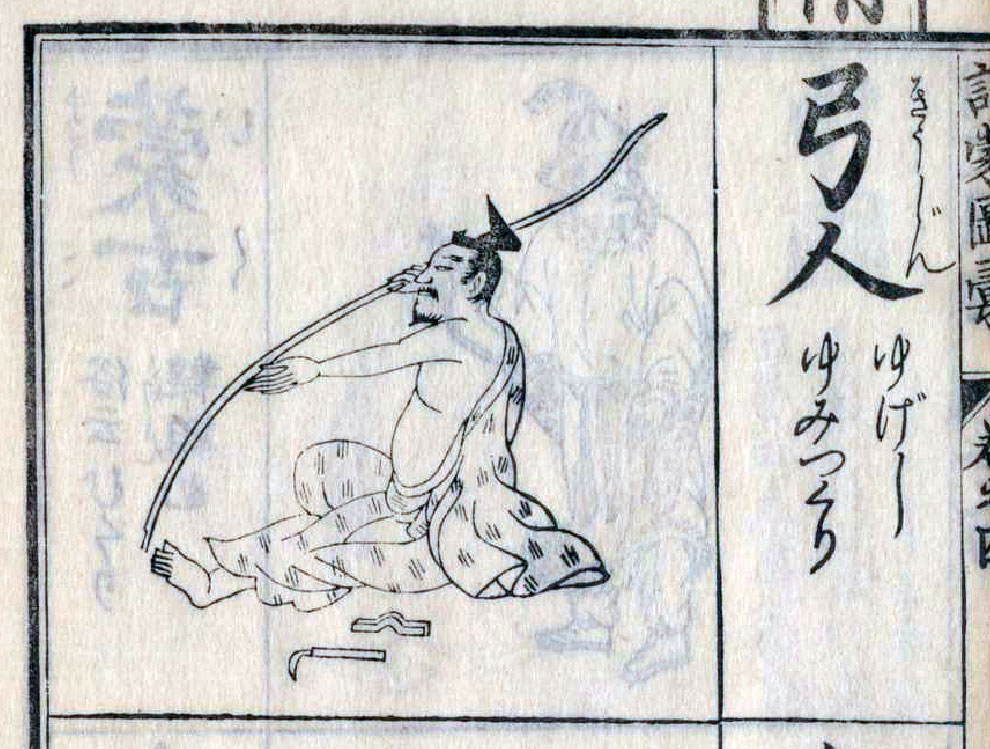 訓蒙圖彙
卷之四
弓人
きうじん
ゆげし
ゆみつくり